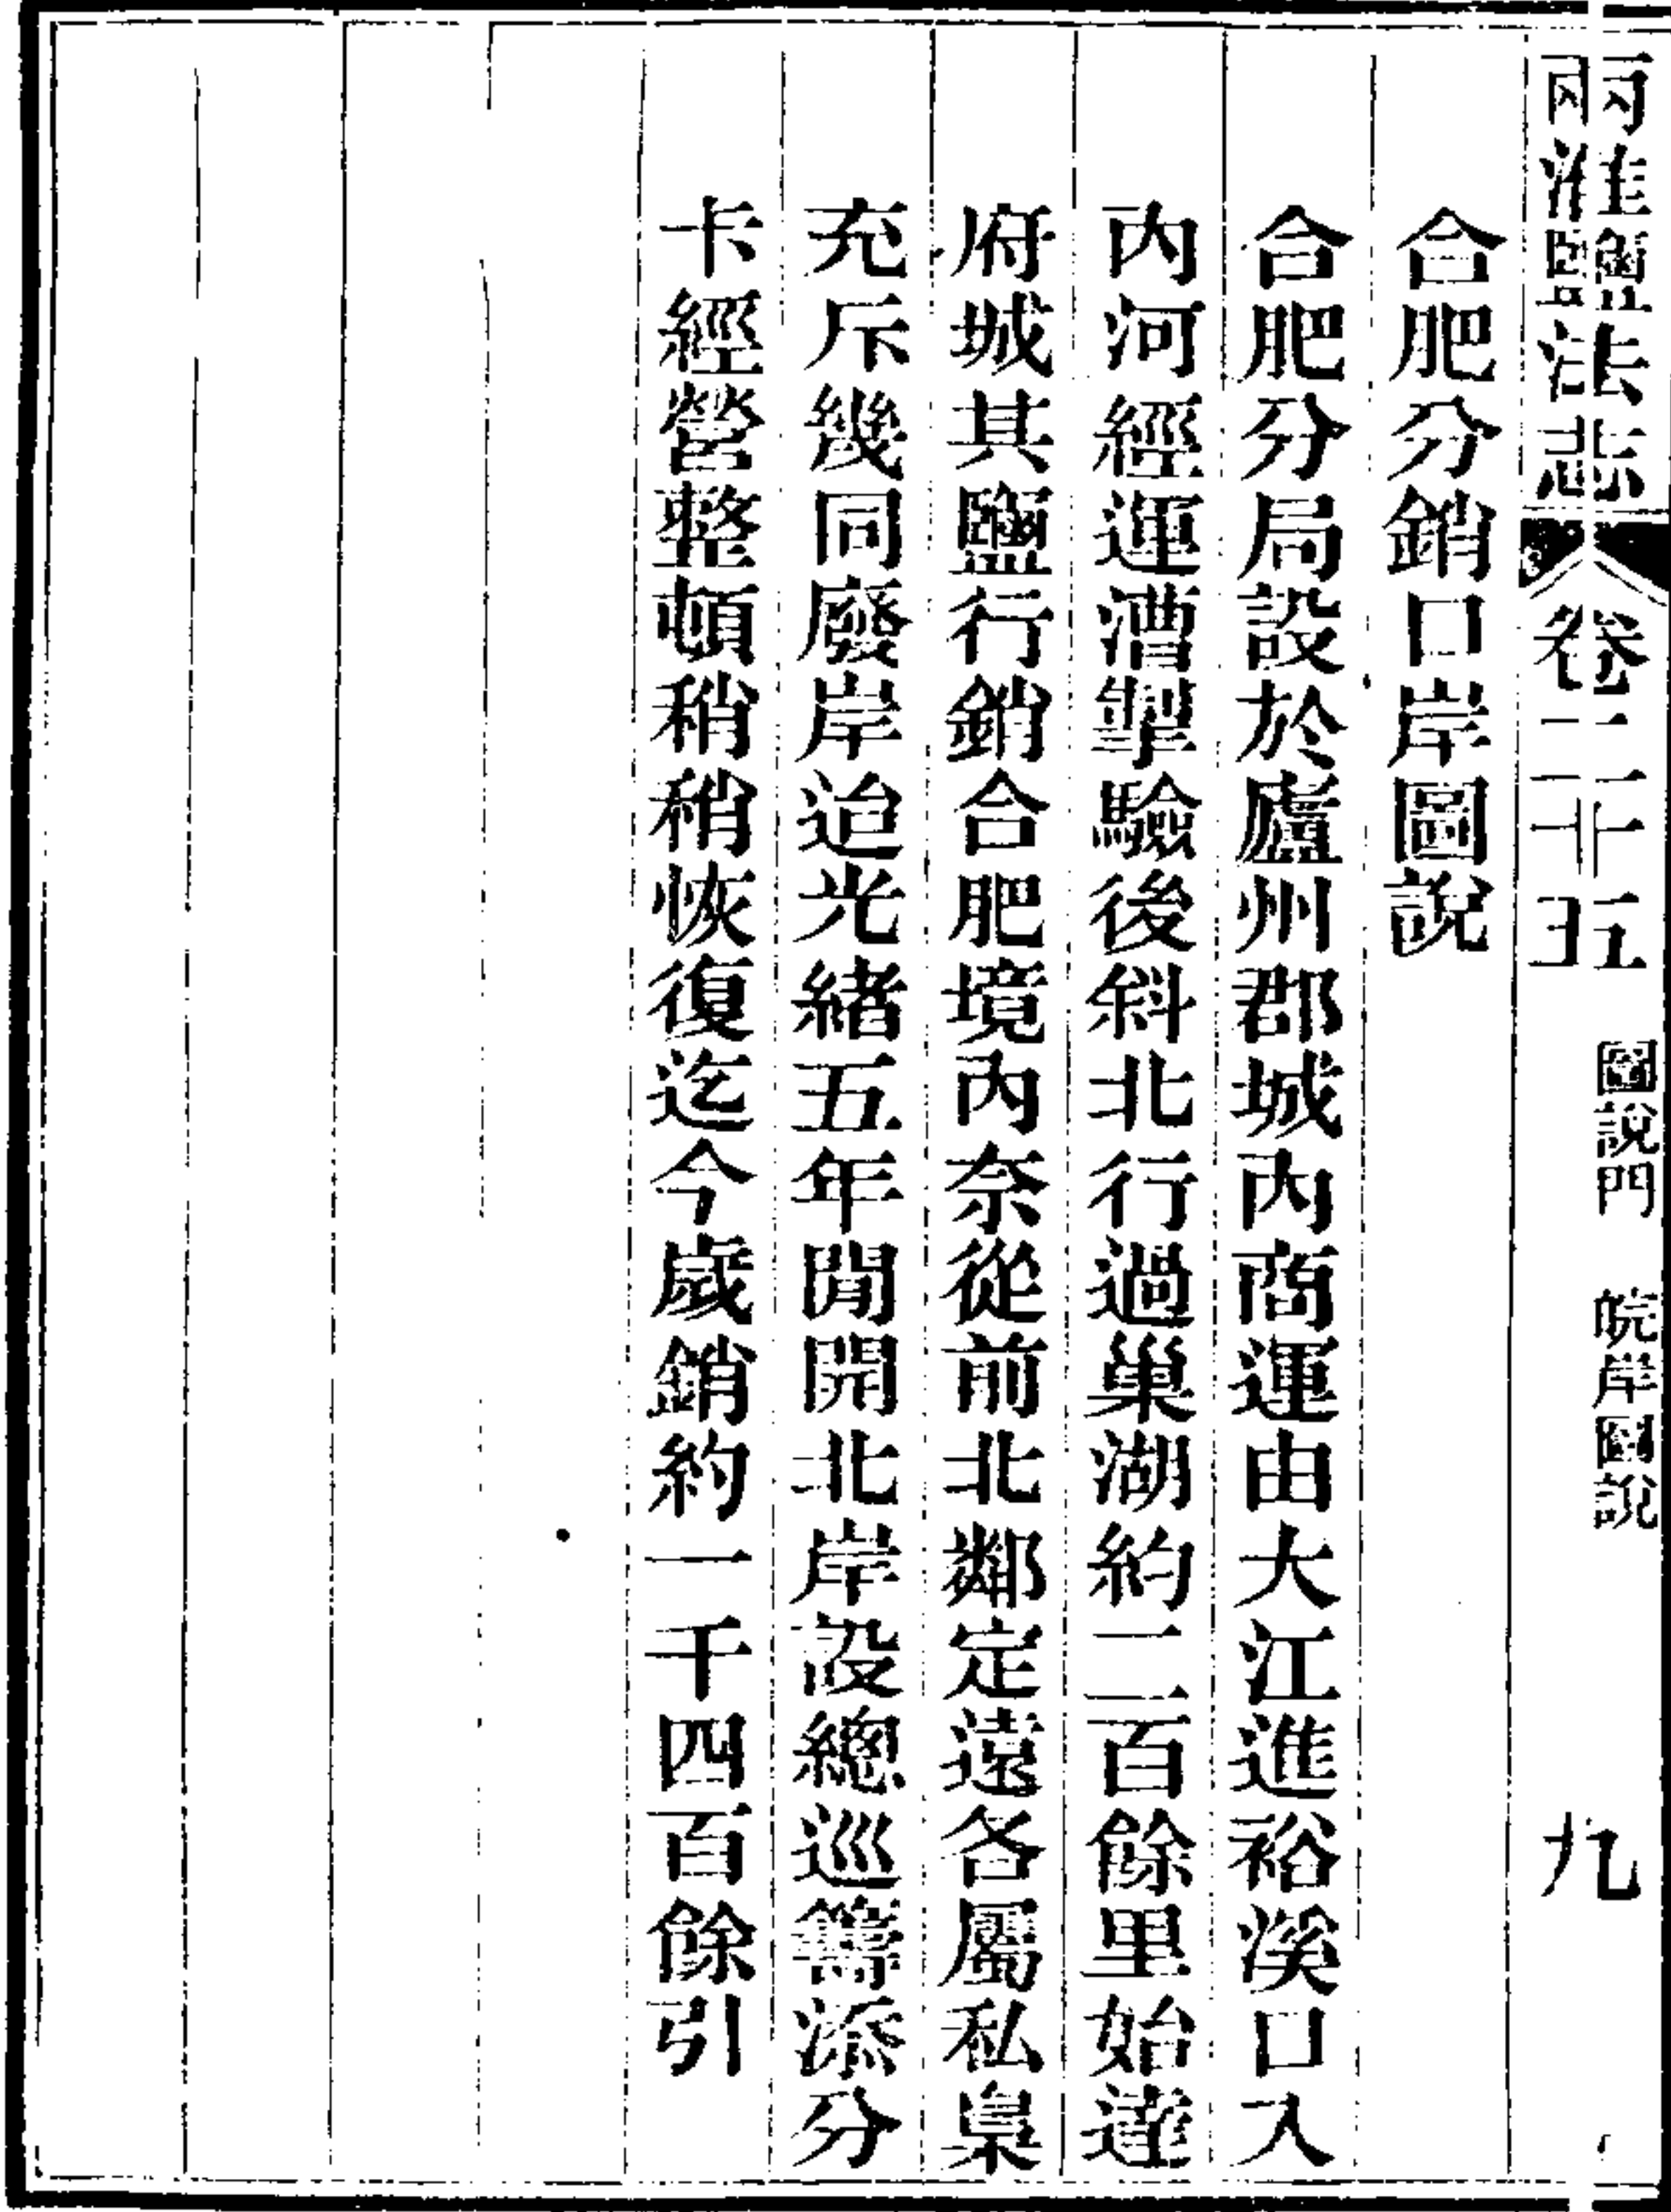 兩淮鹽法志 卷二十五 圖說門 皖岸圖說 九
合肥分銷口岸圖說
合肥分局設於廬州郡城內商運由大江進裕溪口入
內河經運漕掣驗後斜北行過巢湖約二百餘里始達
府城其鹽行銷合肥境內奈從前北鄰定遠各屬私梟
充斥幾同廢岸迨光緒五年閒開北岸設總巡籌添分
卡經營整頓稍稍恢復迄今歲銷約一千四百餘引